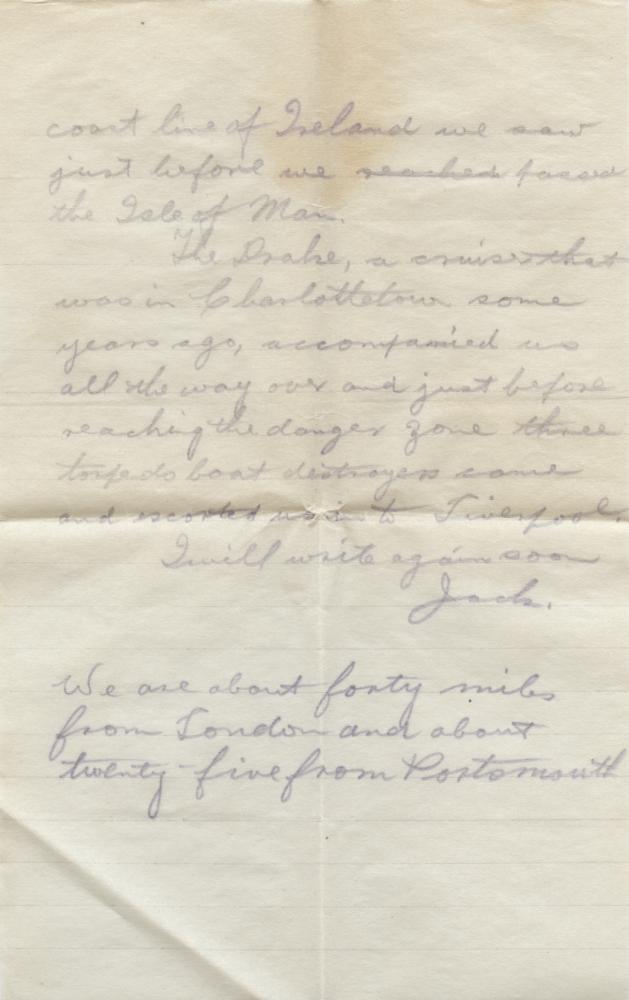 coast line of Ireland we saw
just before we reached passed
the Isle of Man.
The Drake, a cruiser that
was in Charlottetown some
years ago, accompanied us
all the way over and just before
reaching the danger zone three
torpedo boat destroyers came
and escorted us in to Liverpool.
I will write again soon
Jack.
We are about forty miles
from London and about
twenty-five from Portsmouth